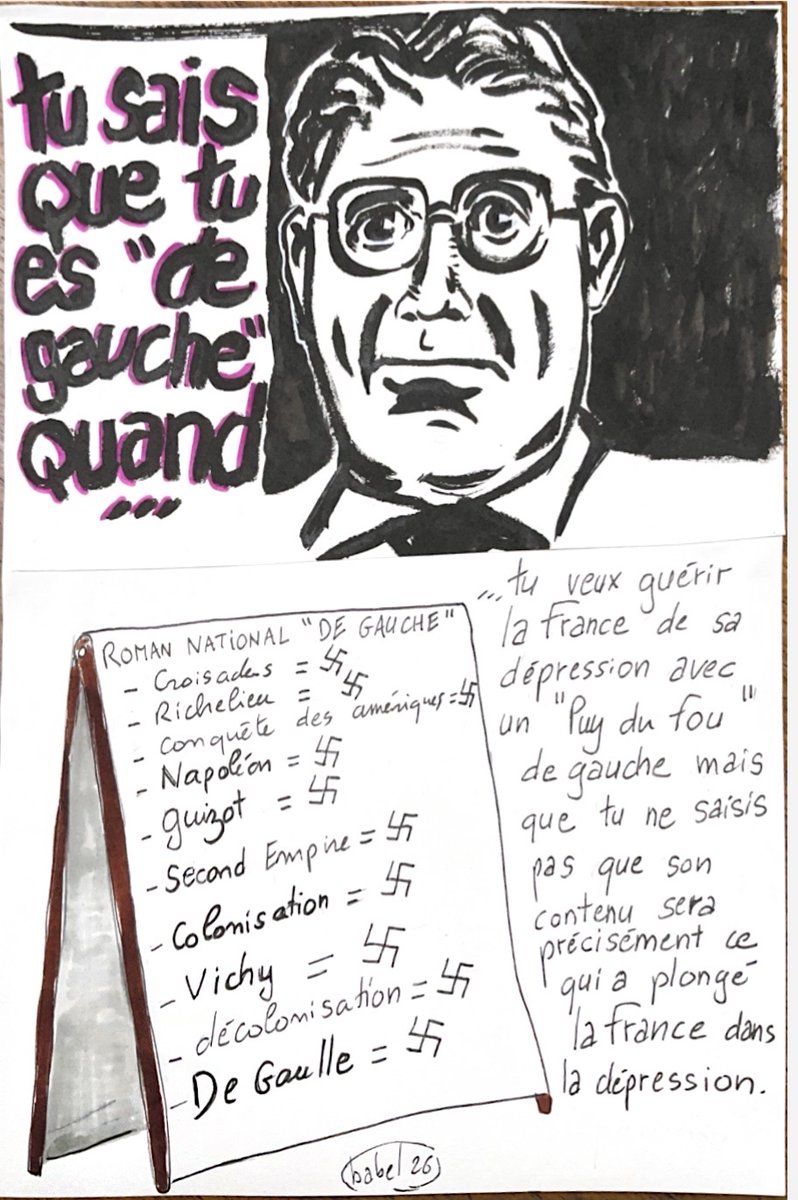 tu sais
que tu
es "de
gauche"
quand
...
ROMAN NATIONAL "DE GAUCHE"
- Croisades = 卐
- Richelieu = 卐
- conquête des amériques = 卐
- Napoléon = 卐
- guizot = 卐
- Second Empire = 卐
- Colonisation = 卐
- Vichy = 卐
- décolonisation = 卐
- De Gaulle = 卐
...tu veux guérir
la france de sa
dépression avec
un "Puy du fou"
de gauche mais
que tu ne saisis
pas que son
contenu sera
précisément ce
qui a plongé
la france dans
la dépression.
babel 26